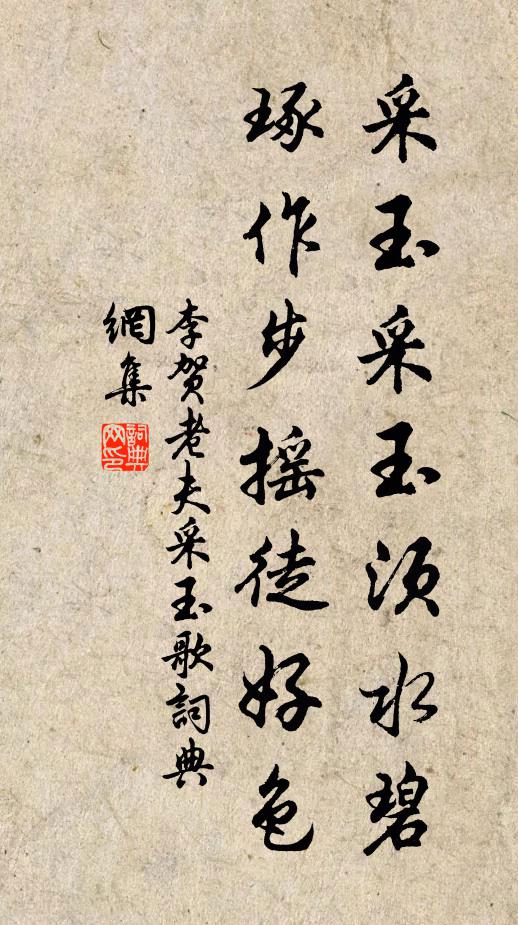 采玉采玉须水碧
琢作步摇徒好色
李贺老夫采玉歌詞典
網集
詞典
网印